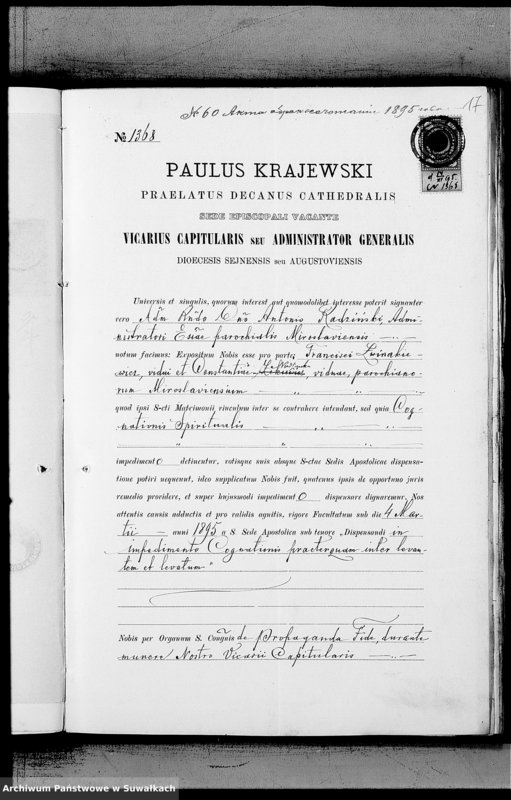 № 60 1895 17
№ 1368
PAULUS KRAJEWSKI
PRAELATUS DECANUS CATHEDRALIS
SEDE EPISCOPALI VACANTE
VICARIUS CAPITULARIS SEU ADMINISTRATOR GENERALIS
DIOECESIS SEJNENSIS SEU AUGUSTOVIENSIS
Universis et singulis, quorum interest aut quomodolibet interesse poterit signanter
vero Adm Rndo Dno Antonio Radziński, Admi-
nistratori Ecclae parochialis Miroslaviensis
notum facimus: Expositum Nobis esse pro parte Francisci
wicz, vidui et Constantiae viduae, parochiano-
rum Miroslaviensium
quod ipsi S-cti Matrimonii vinculum inter se contrahere intendant, sed quia Cog-
nationis Spiritualis
impedimento detinentur, ratisque suis absque S-ctae Sedis Apostolicae dispensa-
tione potiri nequeunt, ideo supplicatum Nobis fuit, quatenus ipsis de opportuno juris
remedio providere, et super hujusmodi impedimento dispensare dignaremur. Nos
attentis causis adductis et pro validis agnitis, vigore Facultatum sub die 4 Mar-
tii anni 1895 a S. Sede Apostolica sub tenore „Dispensandi in
Impedimento Cognationis praeterquam inter levan-
tem et levatum"
Nobis per Organum S. Congnis de Propaganda Fide, durante
munere Nostro Vicarii Capitularis
Archiwum Państwowe w Suwałkach